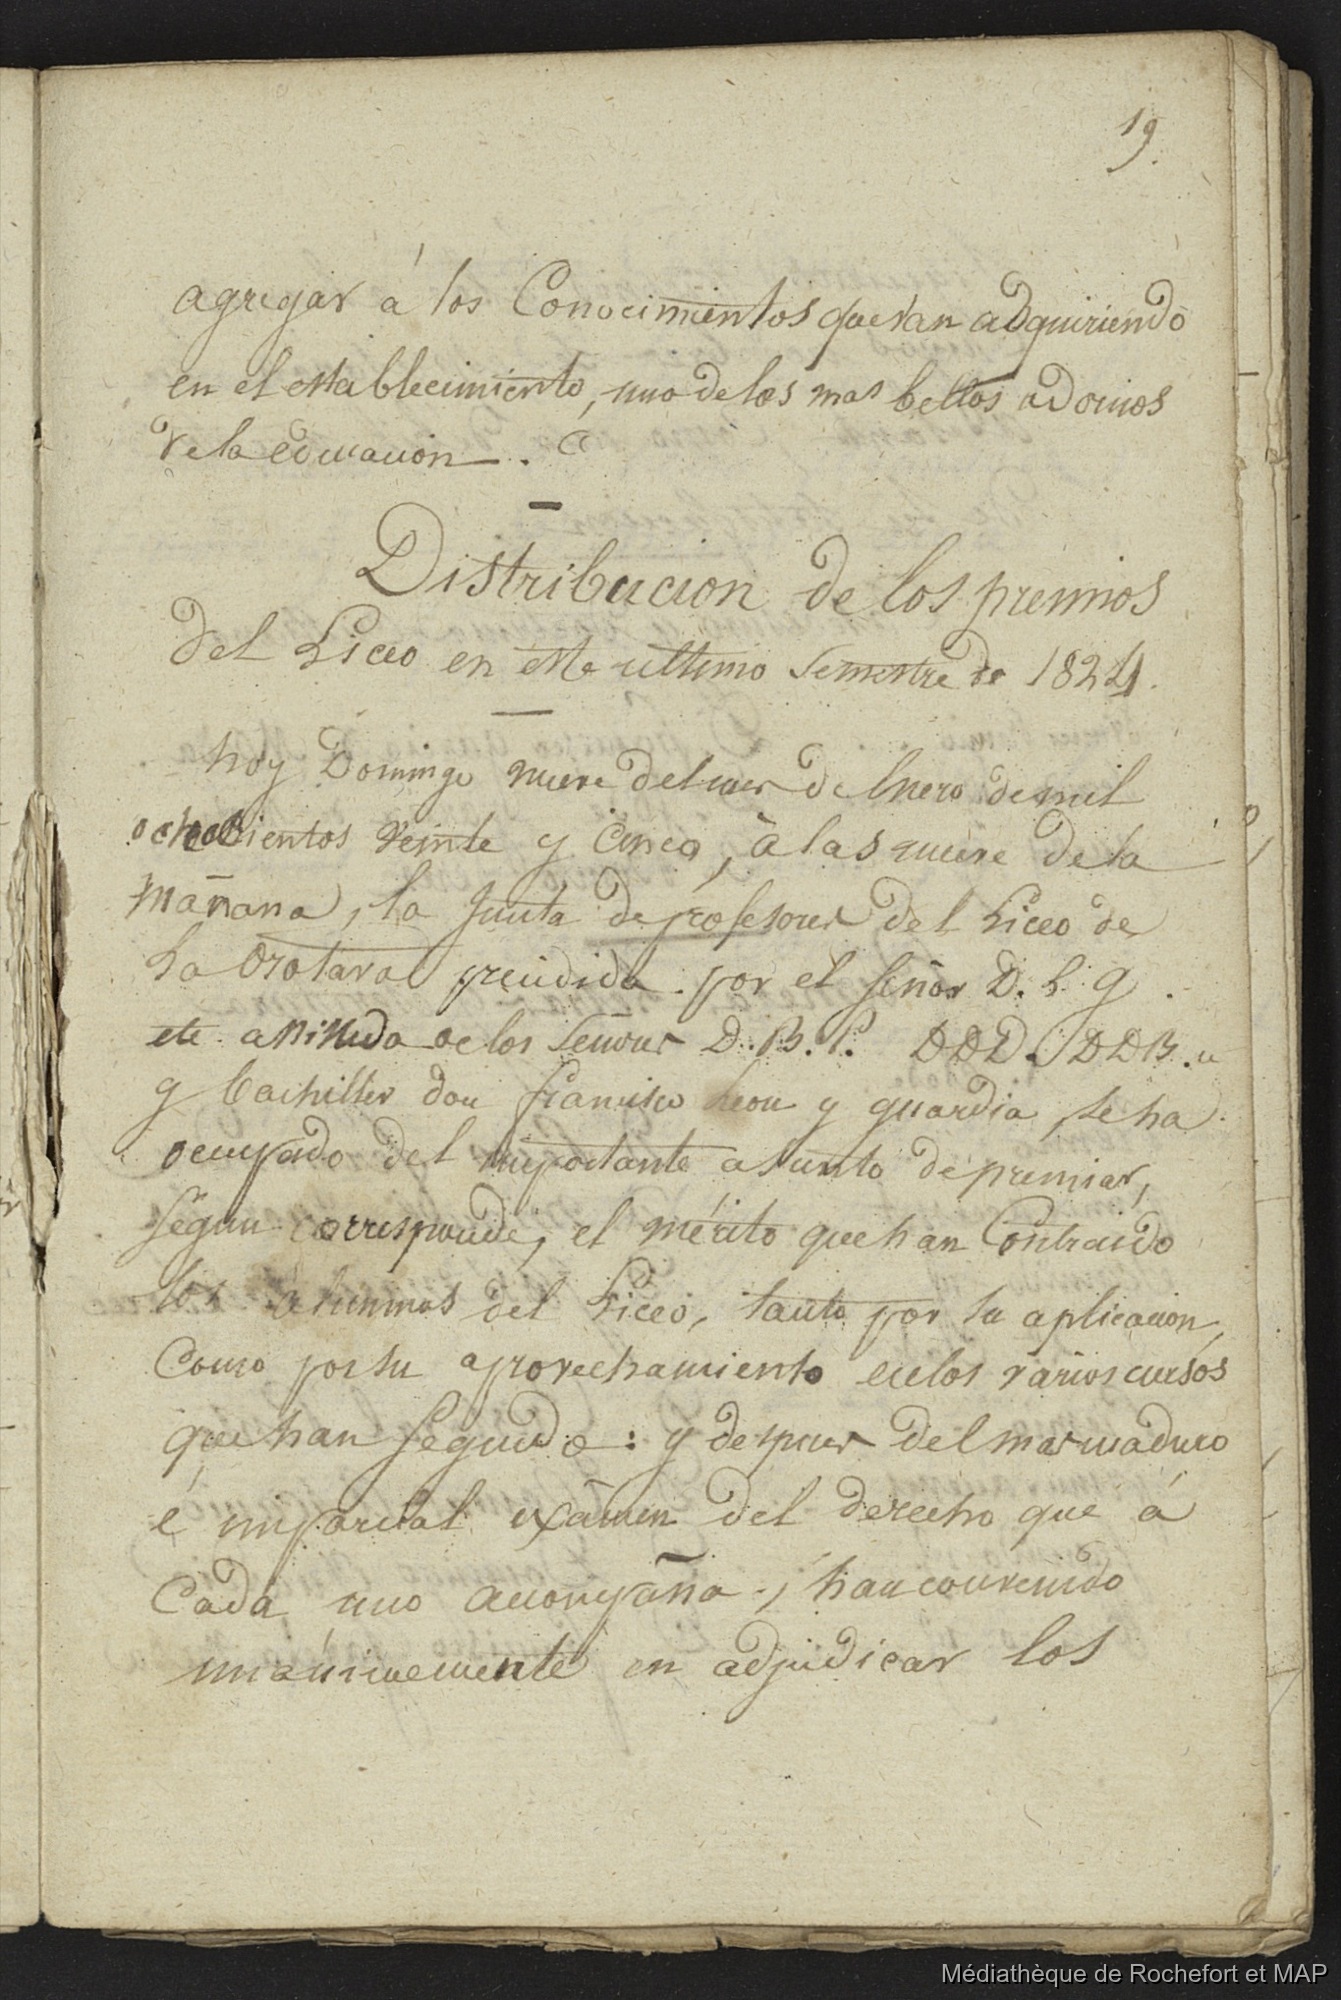 19.
agregar á los Conocimientos que van adquiriendo
en el establecimiento, uno de los mas bellos adornos
de la educacion.
Distribucion de los premios
del Liceo en este ultimo Semestre de 1824.
hoy Domingo nueve del mes de Enero de mil
ochocientos veinte y cinco, à las nueve de la
mañana, la Junta de profesores del Liceo de
La Orotava presidida por el Señor D. L. G.
etc. asistida de los Señores D. B. P. DDD. DDB.
y bachiller don Francisco Leon y guardia, se ha
ocupado del importante asunto de premiar,
segun corresponde, el mérito que han Contraido
los alumnos del Liceo, tanto por su aplicacion,
Como por su aprovechamiento en los varios cursos
que han seguido: y despues del mas maduro
é imparcial exâmen del derecho que á
Cada uno acompaña, han convenido
unánimemente en adjudicar los
Médiathèque de Rochefort et MAP